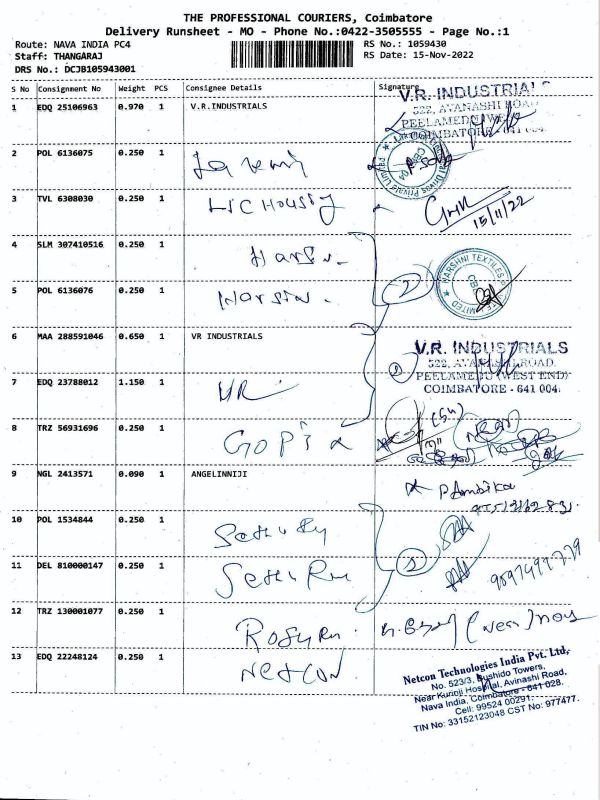 THE PROFESSIONAL COURIERS, Coimbatore
Delivery Runsheet - MO - Phone No.:0422-3505555 - Page No.:1
Route: NAVA INDIA PC4 RS No.: 1059430
Staff: THANGARAJ RS Date: 15-Nov-2022
DRS No.: DCJB105943001
S No Consignment No Weight PCS Consignee Details Signature
1 EDQ 25106963 0.970 1 V.R.INDUSTRIALS
V.R. INDUSTRIAL
522, AVANASHI ROAD
PEELAMEDU (WEST
COIMBATORE - 641 004.
2 POL 6136075 0.250 1
3 TVL 6308030 0.250 1 LIC Housing
15/11/22
4 SLM 307410516 0.250 1 Harsin
HARSHNI TEXTILES
LIMITED
5 POL 6136076 0.250 1 Harsin
2
6 MAA 288591046 0.650 1 VR INDUSTRIALS
V.R. INDUSTRIALS
522, AVANASHI ROAD,
PEELAMEDU (WEST END)
COIMBATORE - 641 004.
7 EDQ 23788012 1.150 1 VR
8 TRZ 56931696 0.250 1 GOPI
9 NGL 2413571 0.090 1 ANGELINNIJI
P Ambika
10 POL 1534844 0.250 1
11 DEL 810000147 0.250 1
2
12 TRZ 130001077 0.250 1
13 EDQ 22248124 0.250 1 NETCON
Netcon Technologies India Pvt. Ltd,
No. 523/3, Bushido Towers,
Near Kurioji Hospital, Avinashi Road,
Nava India, Coimbatore - 641 028.
Cell: 99524 00291.
TIN No: 33152123048 CST No: 977477.